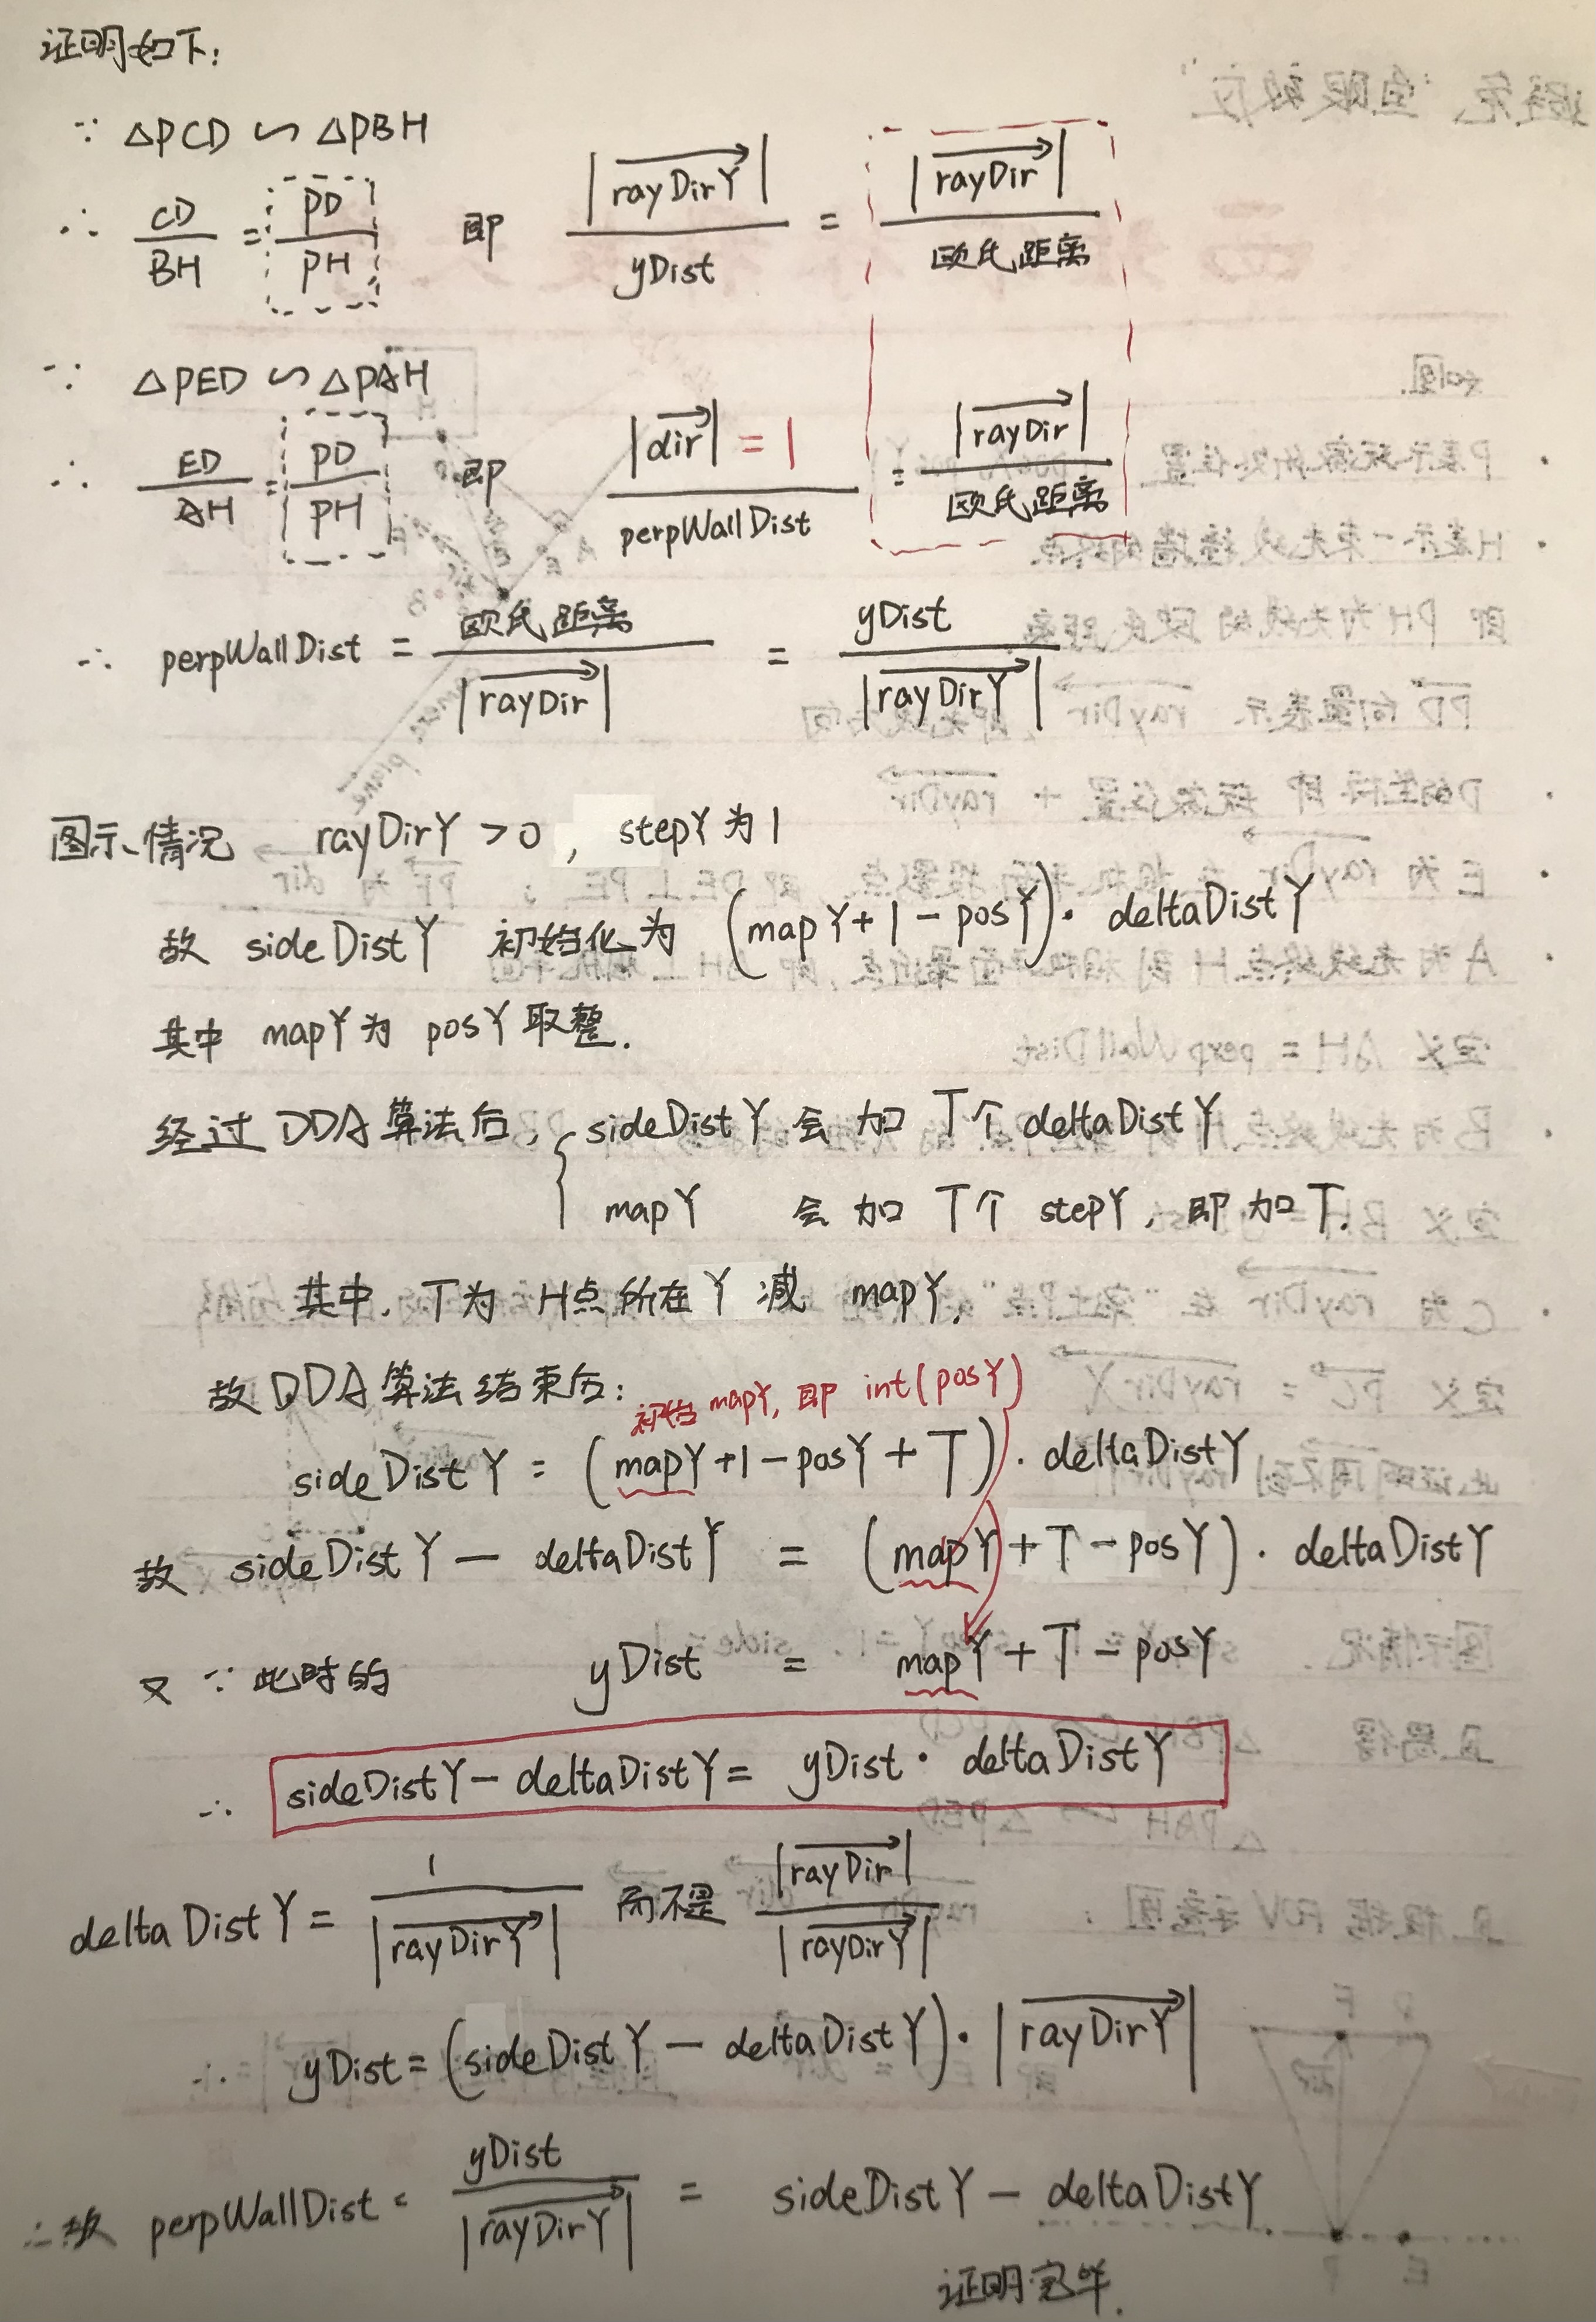 证明如下:
∵ △PCD ∽ △PBH
∴ CD/BH = PD/PH 即 |rayDirY|/yDist = |rayDir|/欧氏距离
∵ △PED ∽ △PAH
∴ ED/AH = PD/PH 即 |dir| = 1/perpWallDist = |rayDir|/欧氏距离
∴ perpWallDist = 欧氏距离/|rayDir| = yDist/|rayDirY|
图示情况 rayDirY > 0, stepY为1
故 sideDistY 初始化为 (mapY+1-posY)· deltaDistY
其中 mapY为 posY取整.
经过DDA算法后, { sideDistY 会加 T个 deltaDistY
mapY 会加 T个 stepY, 即加T.
其中, T为 H点所在Y 减 mapY.
故DDA算法结束后:
初始mapY, 即 int(posY)
sideDistY = (mapY+1-posY+T)· deltaDistY
故 sideDistY - deltaDistY = (mapY+T-posY)· deltaDistY
又∵此时的 yDist = mapY+T-posY
∴ sideDistY - deltaDistY = yDist · deltaDistY
deltaDistY = 1/|rayDirY| 而不是 |rayDir|/|rayDirY|
∴ yDist = (sideDistY - deltaDistY)· |rayDirY|
∴故 perpWallDist = yDist/|rayDirY| = sideDistY - deltaDistY
证明完毕.